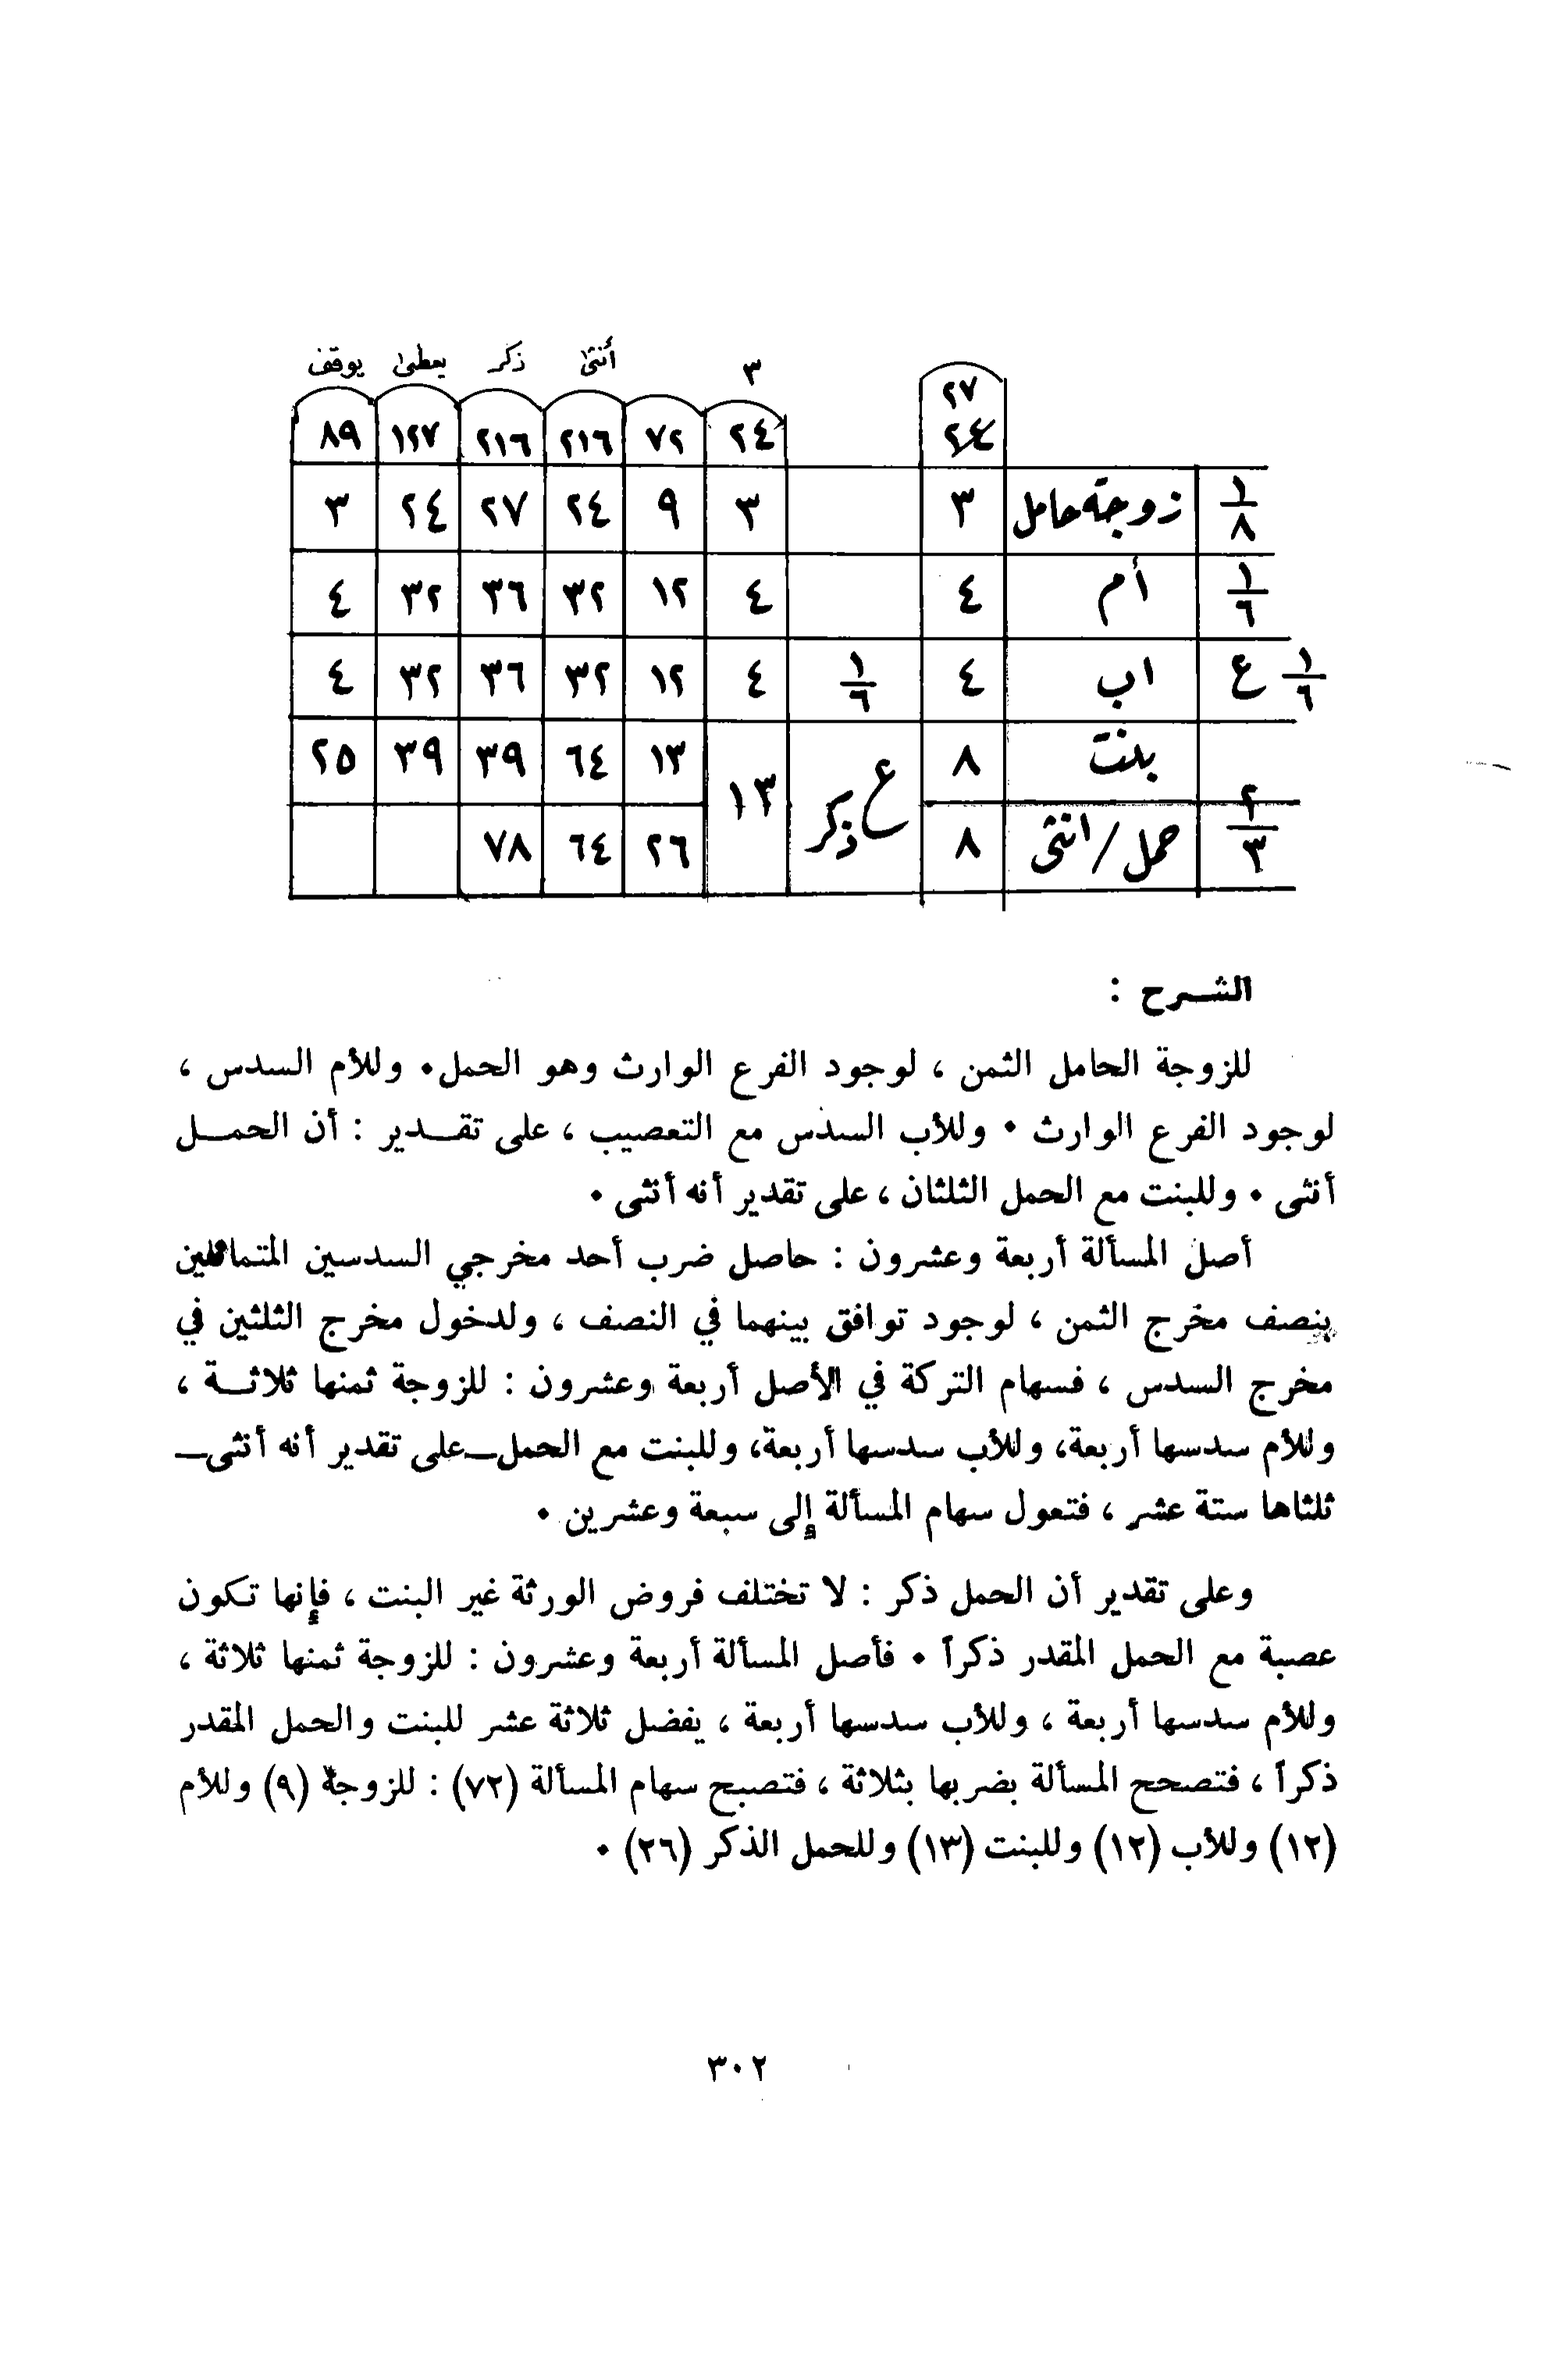 ٢٧ ٣ أنثى ذكر يعطى يوقف
٢٤ ٢٤ ٧٢ ٢١٦ ٢١٦ ١٢٧ ٨٩
١/٨ زوجة حامل ٣ ٣ ٩ ٢٤ ٢٧ ٢٤ ٣
١/٦ أم ٤ ٤ ١٢ ٣٢ ٣٦ ٣٢ ٤
١/٦ ع اب ٤ ١/٦ ٤ ١٢ ٣٢ ٣٦ ٣٢ ٤
٢/٣ بنت ٨ ع ذكر ١٣ ١٣ ٦٤ ٣٩ ٣٩ ٢٥
حمل/انثى ٨ ٢٦ ٦٤ ٧٨
الشـرح :
للزوجة الحامل الثمن ، لوجود الفرع الوارث وهو الحمل٠ وللأم السدس ،
لوجود الفرع الوارث ٠ وللأب السدس مع التعصيب ، على تقـدير : أن الحمـل
أنثى ٠ وللبنت مع الحمل الثلثان ، على تقدير أنه أنثى ٠
أصل المسألة أربعة وعشرون : حاصل ضرب أحد مخرجي السدسين المتماثلين
بنصف مخرج الثمن ، لوجود توافق بينهما في النصف ، ولدخول مخرج الثلثين في
مخرج السدس ، فسهام التركة في الأصل أربعة وعشرون : للزوجة ثمنها ثلاثـة ،
وللأم سدسها أربعة، وللأب سدسها أربعة، وللبنت مع الحمل_على تقدير أنه أنثى_
ثلثاها ستة عشر ، فتعول سهام المسألة إلى سبعة وعشرين ٠
وعلى تقدير أن الحمل ذكر : لا تختلف فروض الورثة غير البنت ، فإنها تكون
عصبة مع الحمل المقدر ذكراً ٠ فأصل المسألة أربعة وعشرون : للزوجة ثمنها ثلاثة ،
وللأم سدسها أربعة ، وللأب سدسها أربعة ، يفضل ثلاثة عشر للبنت والحمل المقدر
ذكراً ، فتصحح المسألة بضربها بثلاثة ، فتصبح سهام المسألة (٧٢) : للزوجة (٩) وللأم
(١٢) وللأب (١٢) وللبنت (١٣) وللحمل الذكر (٢٦) ٠
٣٠٢